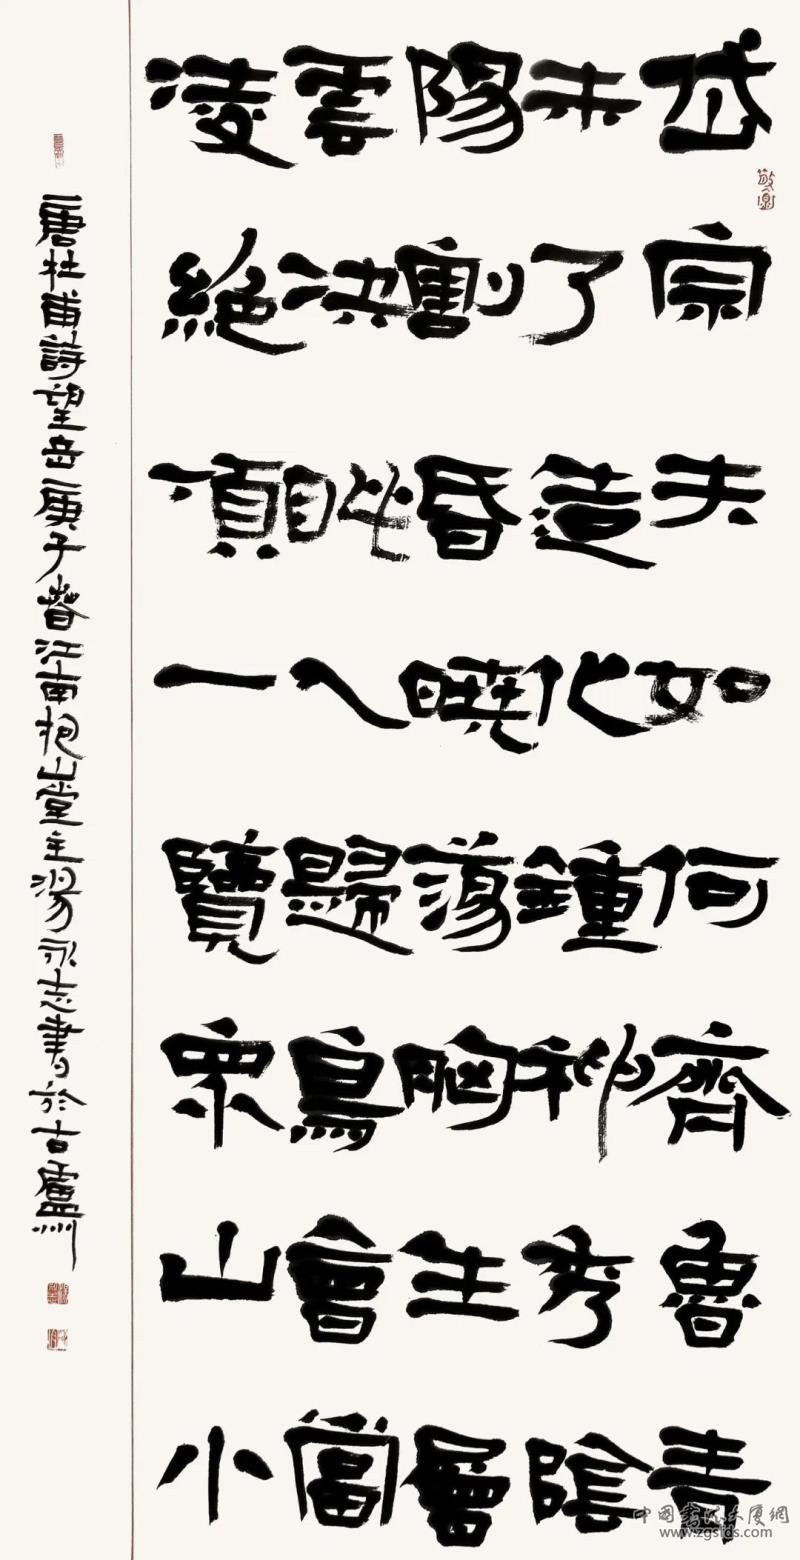 岱宗夫如何齊魯青
未了造化鍾神秀陰
陽割昏曉蕩胸生層
雲決眦入歸鳥會當
凌絕頂一覽眾山小
唐杜甫詩望岳庚子春江南抱山堂主湯永志書於古廬州
中國書法大廈網
www.zgsfds.com